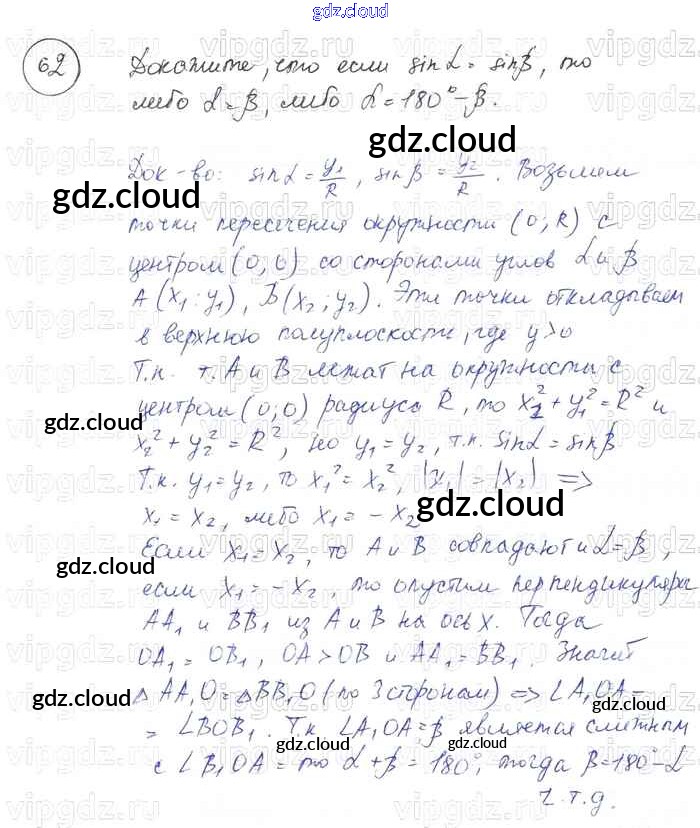 gdz.cloud
62 Докажите, что если sin α = sin β, то
либо α = β, либо α = 180° - β.
gdz.cloud
Док-во: sin α = y₁/R, sin β = y₂/R. Возьмем
gdz.cloud
точки пересечения окружности (0; R) с
центром (0; 0) со сторонами углов α и β
A (x₁; y₁), B (x₂; y₂). Эти точки откладываем
в верхнюю полуплоскость, где y > 0
Т.к. т. A и B лежат на окружности с
gdz.cloud
центром (0; 0) радиуса R, то x₁² + y₁² = R² и
gdz.cloud
x₂² + y₂² = R², но y₁ = y₂, т.к. sin α = sin β
Т.к. y₁ = y₂, то x₁² = x₂², |x₁| = |x₂| ⇒
gdz.cloud
x₁ = x₂, либо x₁ = - x₂
Если x₁ = x₂, то A и B совпадают и α = β,
gdz.cloud
если x₁ = - x₂, то опустим перпендикуляры
AA₁ и BB₁ из A и B на ось x. Тогда
OA₁ = OB₁, OA > OB и AA₁ = BB₁. Значит
gdz.cloud
△ AA₁O = △ BB₁O (по 3 сторонам) ⇒ ∠A₁OA =
gdz.cloud
= ∠BOB₁. Т.к. ∠A₁OA = β является смежным
gdz.cloud
с ∠B₁OA = то α + β = 180°, тогда β = 180° - α
ч.т.д.